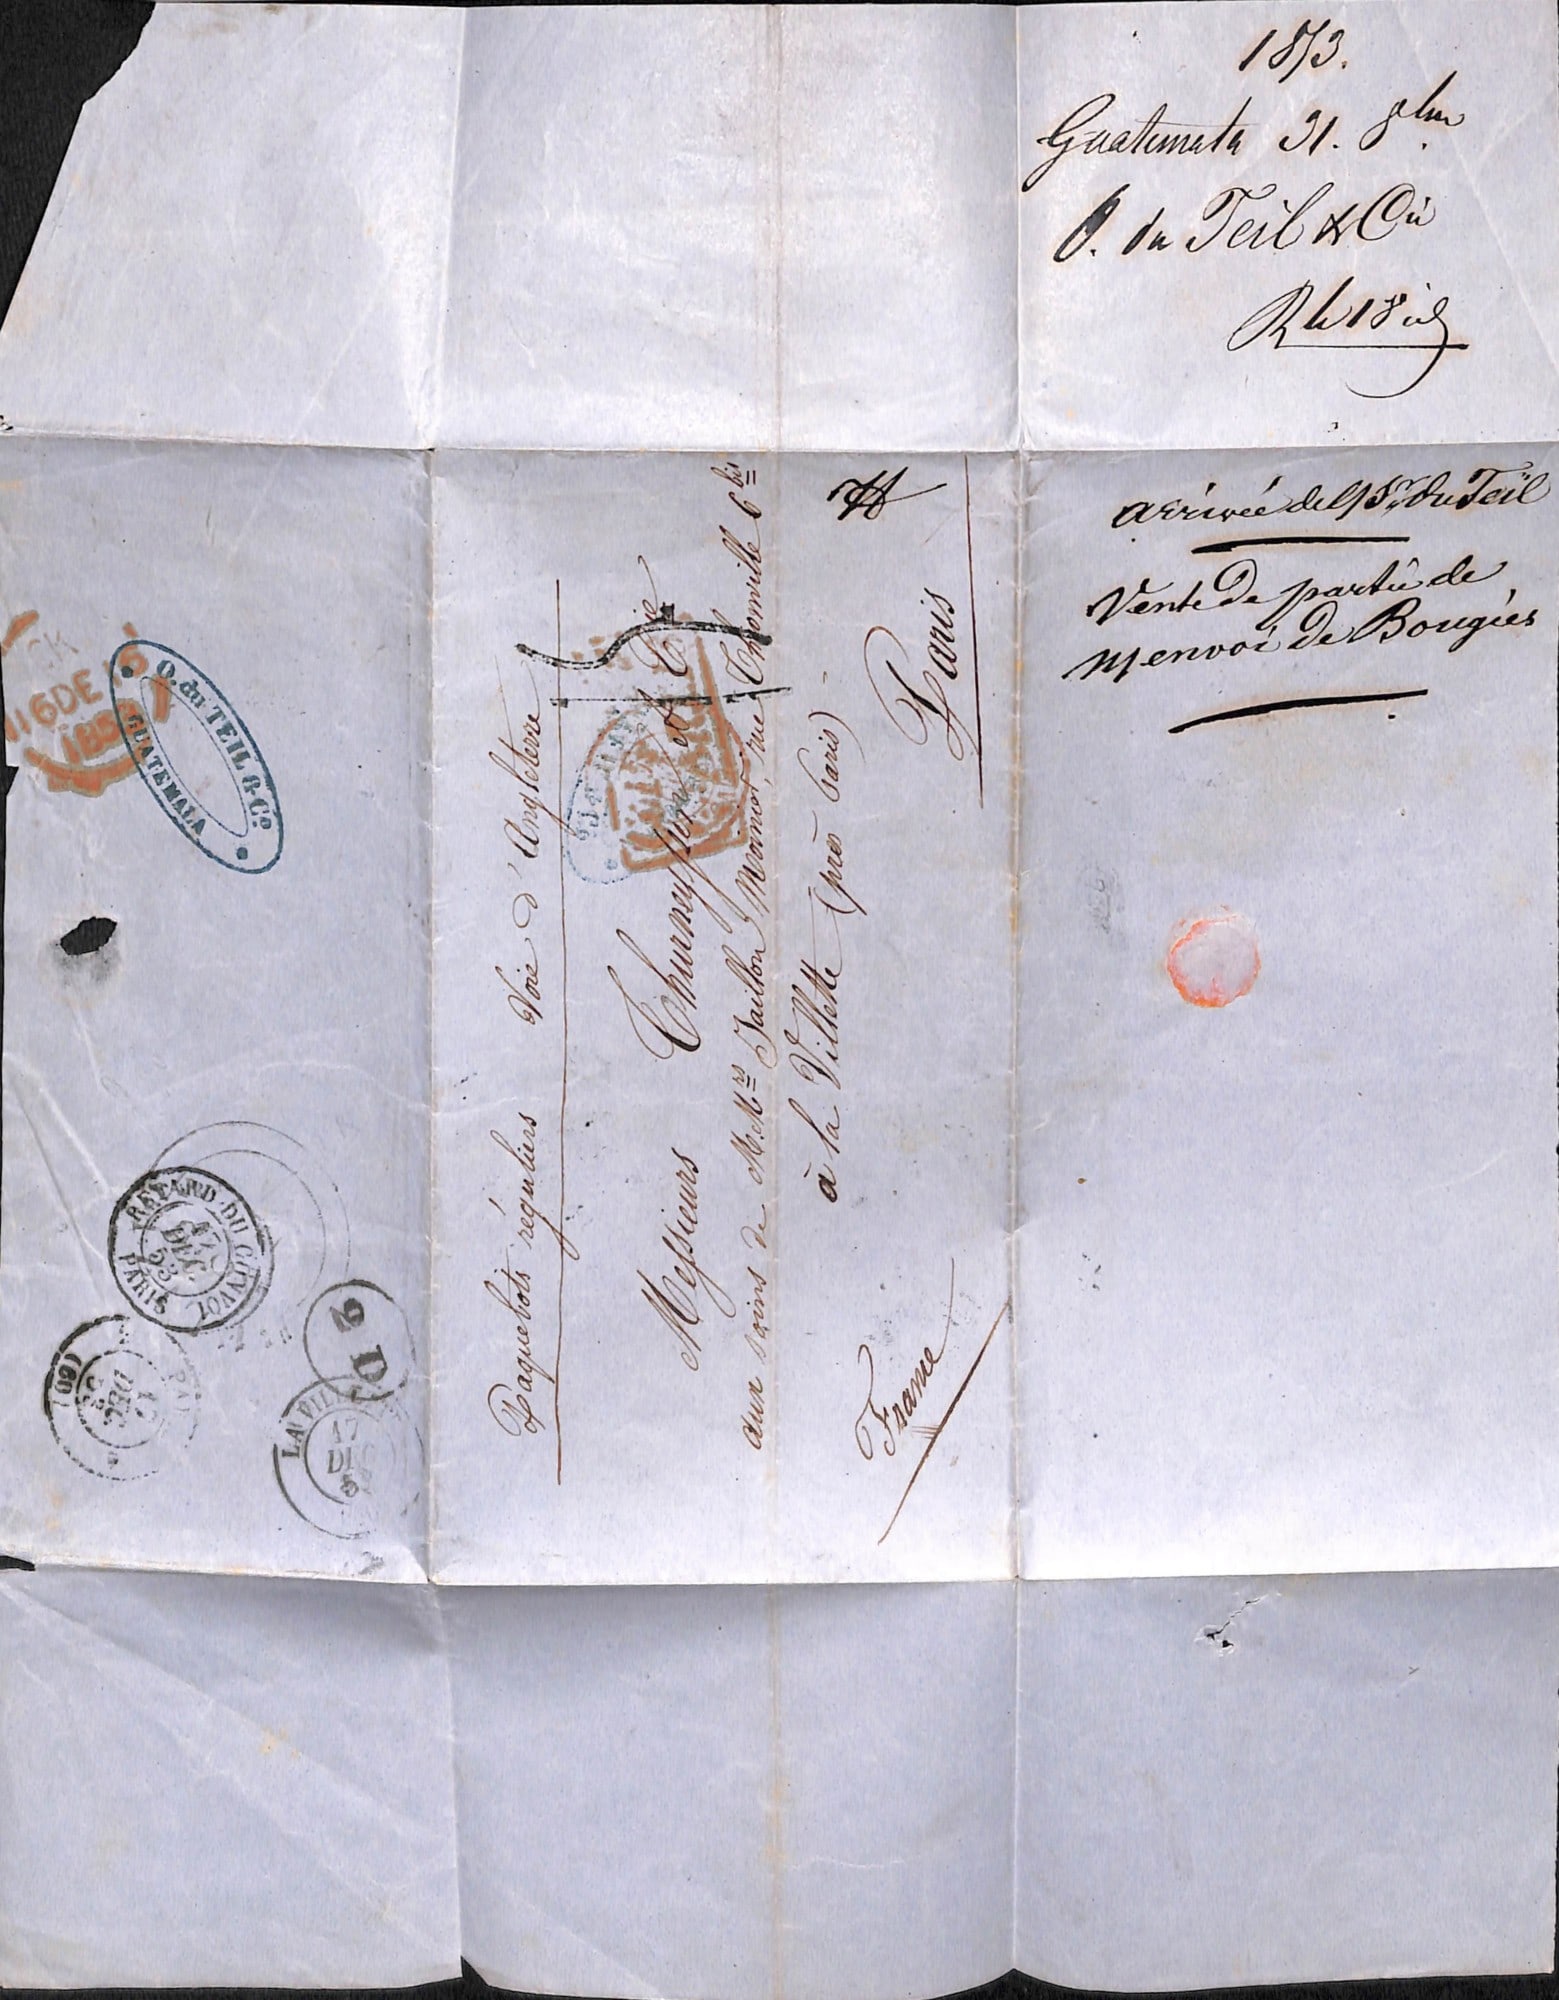 1853.
Guatemala 31. 8bre
O. du Teil & Cie
R le 18 id
arrivée de Mr. du Teil
Vente de partie de
m envoi de Bougies
Paquebots réguliers Voie d'Angleterre
Messieurs Thurneyssen et Cie
aux soins de M.Mrs Jaillon, Moinier, rue Thionville 6 bis
à la Villette (près Paris) -
Paris
France
O. du TEIL & Co.
GUATEMALA
16 DE 16
185
RETARD DU CONVOI
17
DEC.
53
PARIS
(60)
DEC
2 D
LA VILLETTE
17
DEC
5